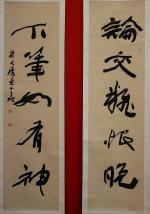 論交頗恨晚
下筆如有神